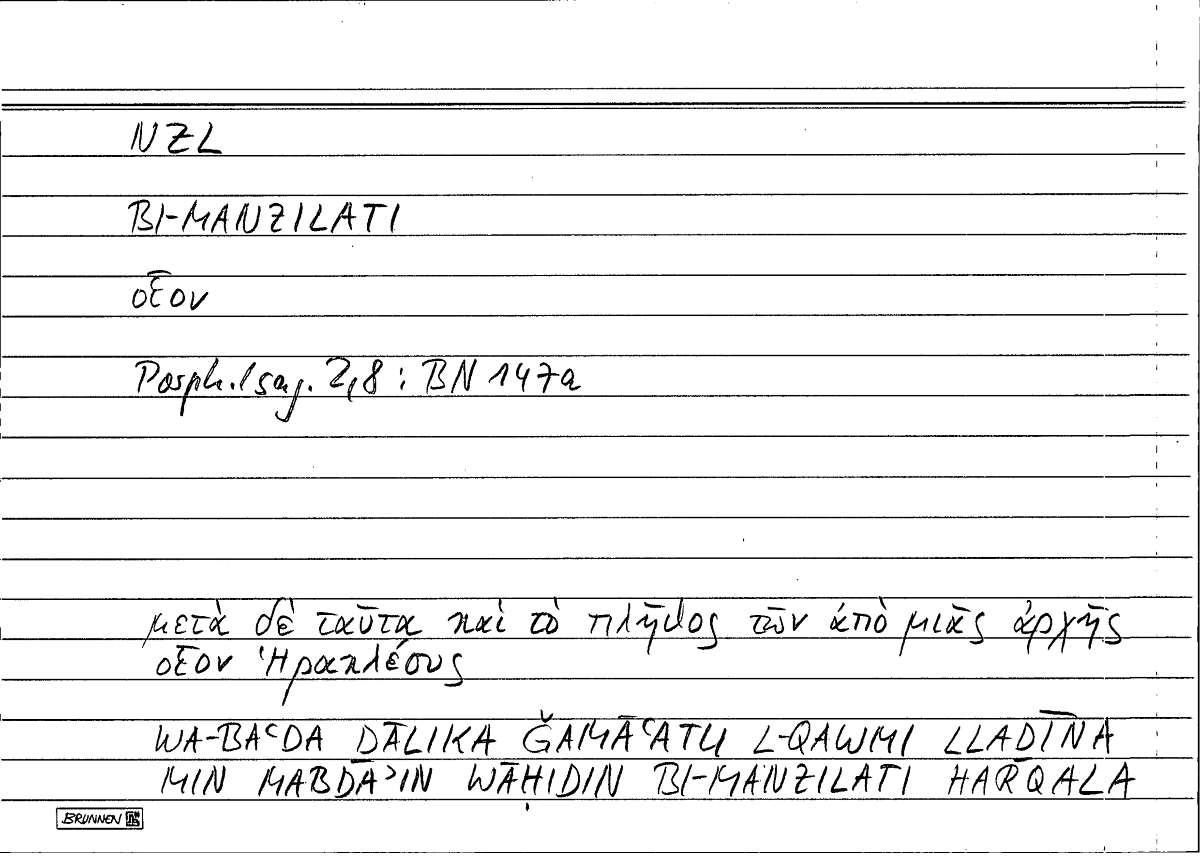 NZL
BI-MANZILATI
οἷον
Porph. Isag. 2,8 : BN 147a
μετὰ δὲ ταῦτα καὶ τὸ πλῆθος τῶν ἀπὸ μιᾶς ἀρχῆς
οἷον Ἡρακλέους
WA-BAʿDA DĀLIKA ǦAMĀʿATU L-QAWMI LLADĪNA
MIN MABDAʾIN WĀHIDIN BI-MANZILATI HARQALA
BRUNNEN